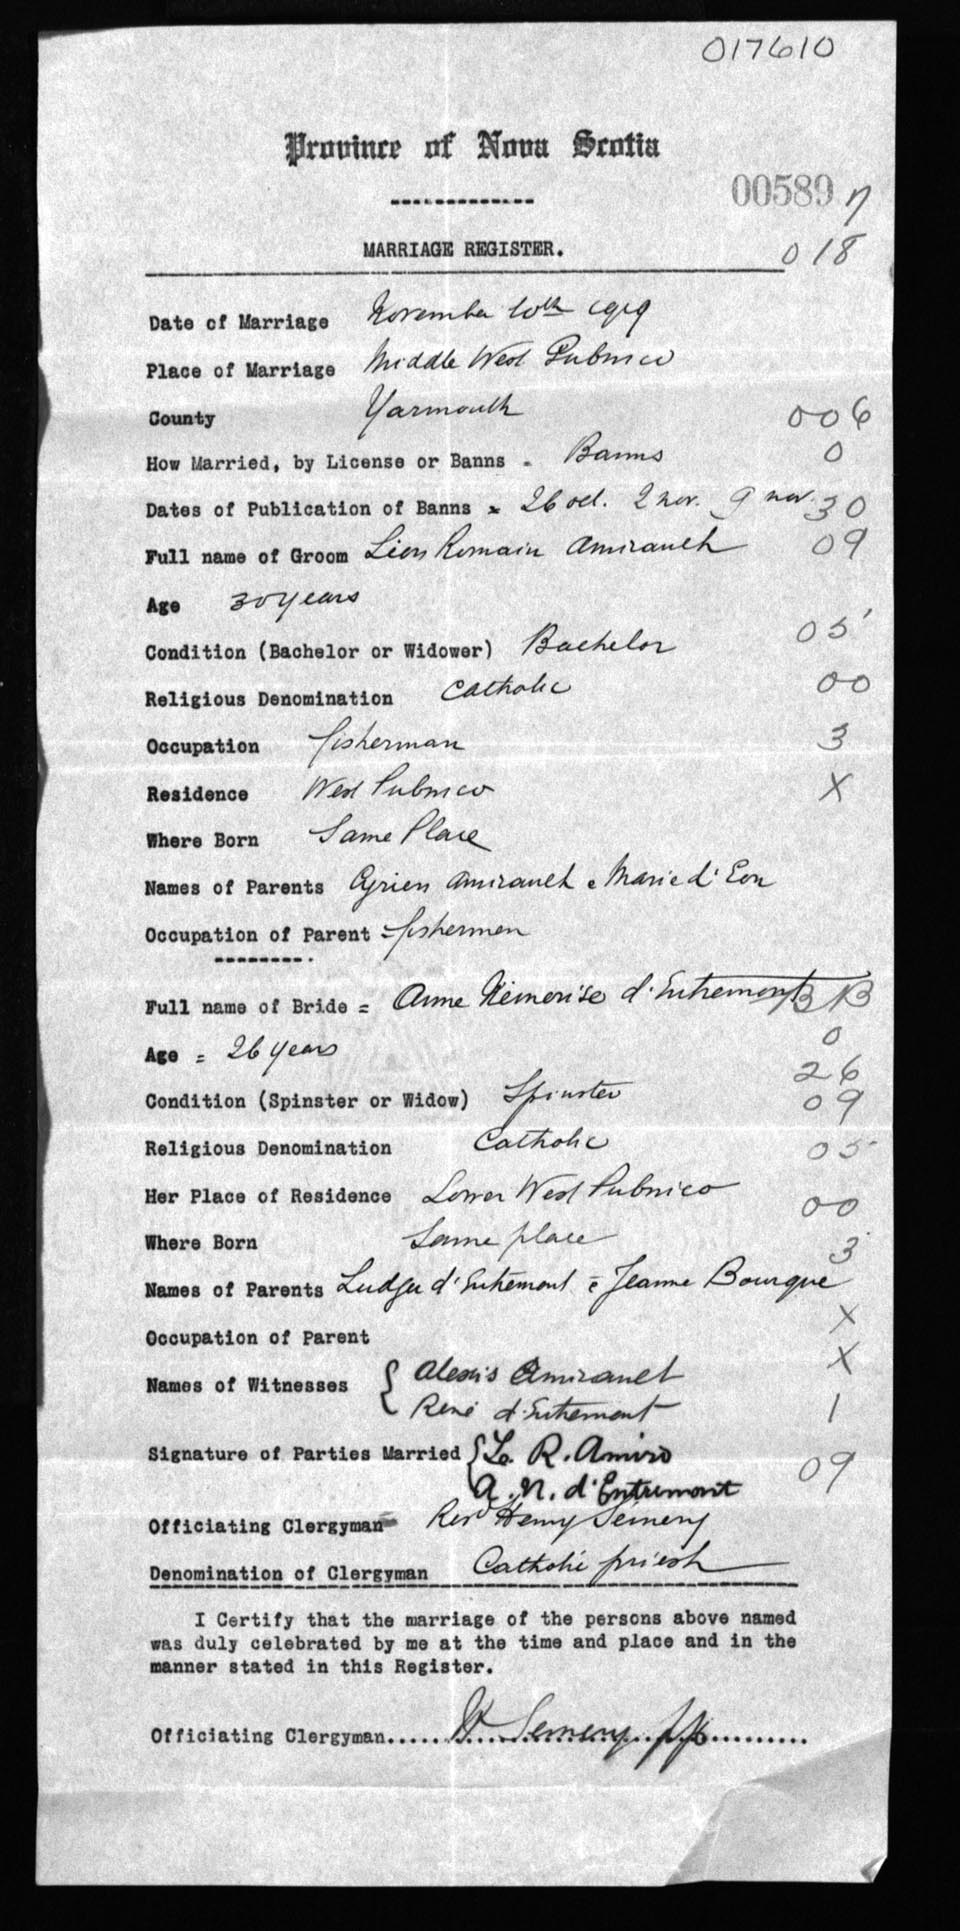 017610
Province of Nova Scotia
00589 7
MARRIAGE REGISTER.
018
Date of Marriage November 10th 1919
Place of Marriage Middle West Pubnico
County Yarmouth 006
How Married, by License or Banns - Banns 0
Dates of Publication of Banns - 26 oct. 2 nov. 9 nov. 30
Full name of Groom Léon Romain Amirault 09
Age 30 years
Condition (Bachelor or Widower) Bachelor 05
Religious Denomination Catholic 00
Occupation fisherman 3
Residence West Pubnico X
Where Born Same Place
Names of Parents Cyrien Amirault & Marie d'Eon
Occupation of Parent - fishermen
Full name of Bride = Anne Némerise d'Entremont
0
Age = 26 years
26
Condition (Spinster or Widow) Spinster 09
Religious Denomination Catholic 05
Her Place of Residence Lower West Pubnico 00
Where Born Same place 3
Names of Parents d'Entremont & Jeanne Bourque
Occupation of Parent X
Names of Witnesses { Alexis Amirault X
René d'Entremont 1
Signature of Parties Married { Lo. R. Amiro
A. N. d'Entremont 09
Officiating Clergyman Revd Henry Semery
Denomination of Clergyman Catholic priest
I Certify that the marriage of the persons above named
was duly celebrated by me at the time and place and in the
manner stated in this Register.
Officiating Clergyman..... H Semery ..........